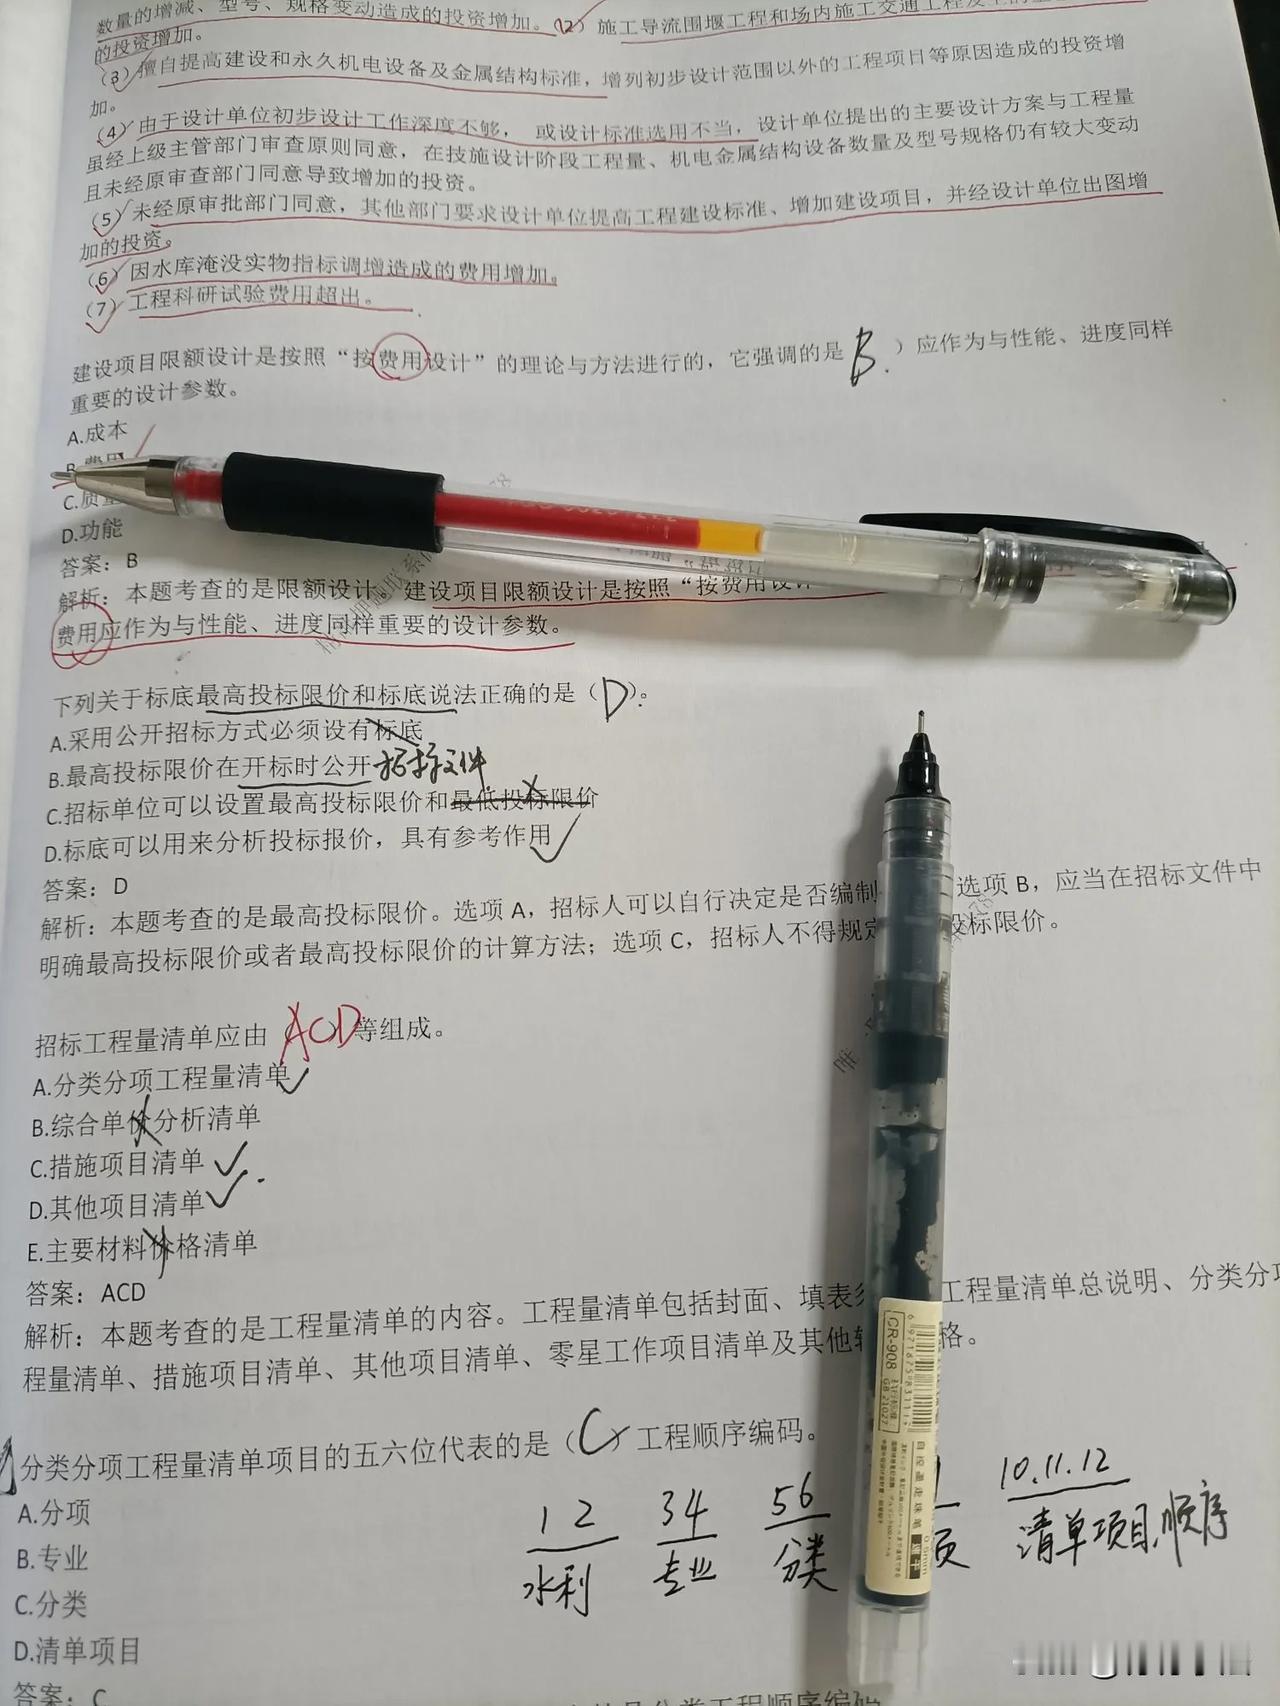 数量的增减、型号、规格变动造成的投资增加。(2）施工导流围堰工程和场内施工交通工程
的投资增加。
（3）擅自提高建设和永久机电设备及金属结构标准，增列初步设计范围以外的工程项目等原因造成的投资增
加。
（4）由于设计单位初步设计工作深度不够， 或设计标准选用不当，设计单位提出的主要设计方案与工程量
虽经上级主管部门审查原则同意，在技施设计阶段工程量、机电金属结构设备数量及型号规格仍有较大变动
且未经原审查部门同意导致增加的投资。
（5）未经原审批部门同意，其他部门要求设计单位提高工程建设标准、增加建设项目，并经设计单位出图增
加的投资。
（6）因水库淹没实物指标调增造成的费用增加。
（7）工程科研试验费用超出。
建设项目限额设计是按照“按费用设计”的理论与方法进行的，它强调的是 B ）应作为与性能、进度同样
重要的设计参数。
A.成本
B.费用
C.质量
D.功能
答案：B
解析：本题考查的是限额设计。建设项目限额设计是按照“按费用设计
费用应作为与性能、进度同样重要的设计参数。
下列关于标底最高投标限价和标底说法正确的是（D）。
A.采用公开招标方式必须设有标底
B.最高投标限价在开标时公开 招标文件
C.招标单位可以设置最高投标限价和最低投标限价
D.标底可以用来分析投标报价，具有参考作用
答案：D
解析：本题考查的是最高投标限价。选项 A，招标人可以自行决定是否编制 选项 B，应当在招标文件中
明确最高投标限价或者最高投标限价的计算方法；选项 C，招标人不得规定 投标限价。
招标工程量清单应由 ACD 等组成。
A.分类分项工程量清单
B.综合单价分析清单
C.措施项目清单
D.其他项目清单
E.主要材料价格清单
答案：ACD
解析：本题考查的是工程量清单的内容。工程量清单包括封面、填表须 工程量清单总说明、分类分项
程量清单、措施项目清单、其他项目清单、零星工作项目清单及其他 格。
分类分项工程量清单项目的五六位代表的是（C）工程顺序编码。
A.分项
B.专业
C.分类
D.清单项目
答案：C
12 34 56 10.11.12
水利 专业 分类 清单项目顺序
CR-908
GB 21027
6971675831117
自控墨走珠笔 速干
0.5mm